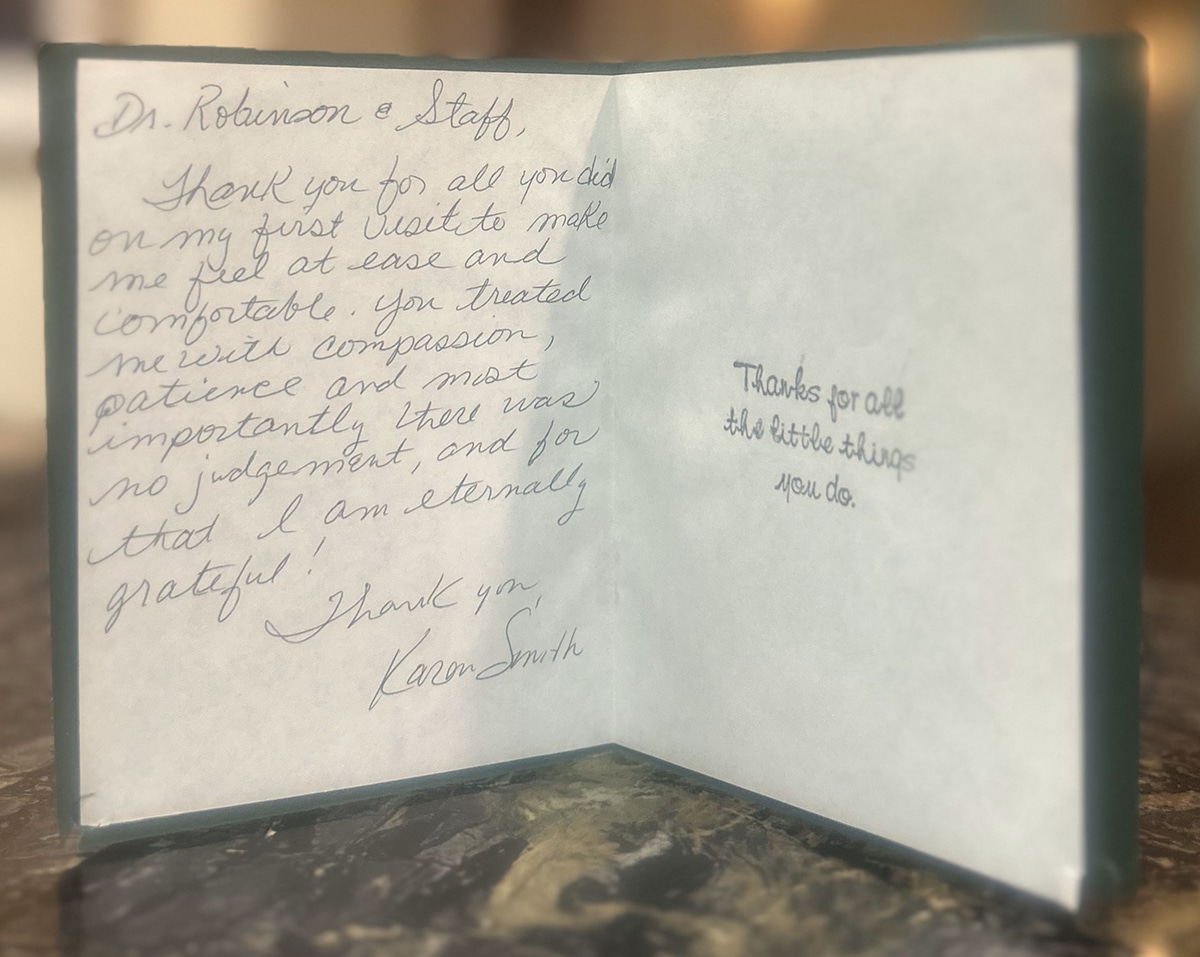 Dr. Robinson & Staff,
Thank you for all you did
on my first visit to make
me feel at ease and
comfortable. You treated
me with compassion,
patience and most
importantly there was
no judgement, and for
that I am eternally
grateful!
Thank you,
Karen Smith
Thanks for all
the little things
you do.